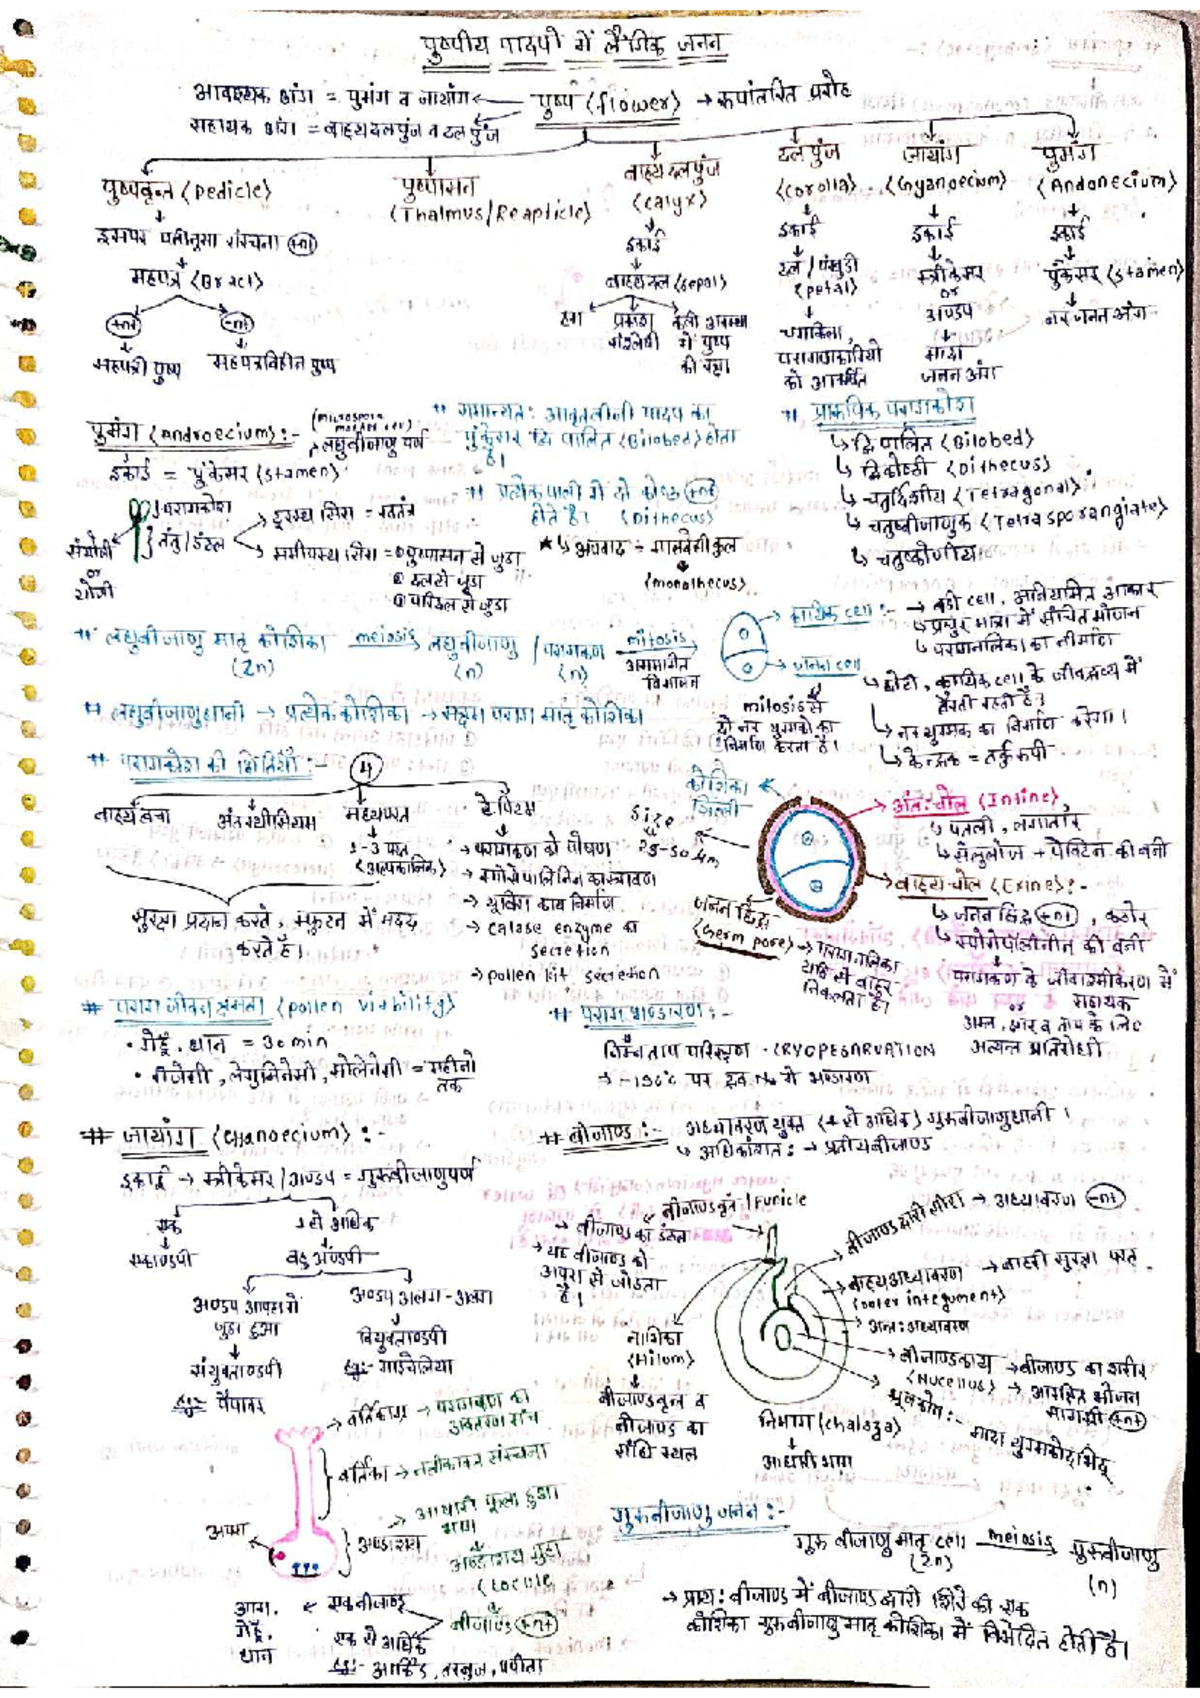 पुष्पीय पादपों में लैंगिक जनन
आवश्यक अंग = पुमंग व जायांग ← पुष्प (flower) → रूपांतरित प्ररोह
सहायक अंग = बाह्यदलपुंज व दलपुंज
पुष्पवृन्त (Pedicle)
इसपर पत्तीनुमा संरचना +nt
सहपत्र (Bract)
+nt -nt
सहपत्री पुष्प सहपत्रविहीन पुष्प
पुष्पासन
(Thalmus/Reapticle)
बाह्यदलपुंज
(calyx)
इकाई
बाह्यदल (sepal)
हरा प्रकाश संश्लेषी कली अवस्था में पुष्प की रक्षा
दलपुंज
(corolla)
इकाई
दल / पंखुडी
(petal)
चमकिला,
परागणकारियो
को आकर्षित
जायांग
(Gyanoecium)
इकाई
स्त्रीकेसर
or
अण्डप
मादा
जनन अंग
पुमंग
(Andonecium)
इकाई
पुंकेसर (stamen)
नर जनन अंग
पुमंग (Androecium):-
इकाई = पुंकेसर (stamen)
लघुबीजाणु पर्ण
परागकोश
तंतु/डंठल
संयोजी
or
योजी
दूरस्थ सिरा = स्वतंत्र
समीपस्थ सिरा = ① पुष्पासन से जुडा
② दल से जुडा
① परिदल से जुडा
# सामान्यत: आवृतबीजी पादप का
पुंकेसर द्वि पालित (Bilobed) होता
है।
# प्रत्येक पाली में दो कोष्ठ +nt
होते है। (Dithecus)
★ ↳ अपवाद = मालवेसी कुल
(monothecus)
# प्रारूपिक परागकोश
↳ द्विपालित (Bilobed)
↳ द्विकोष्ठी (Dithecus)
↳ चतुर्दिशीय (Tetragonal)
↳ चतुष्बीजाणुक (Tetrasporangiate)
↳ चतुष्कोणीय
# लघुबीजाणु मातृ कोशिका meiosis लघुबीजाणु / परागकण mitosis
(2n) (n) (n) असमान विभाजन
कायिक cell :- → बडी cell, अनियमित आकार
↳ प्रचुर मात्रा में संचित भोजन
↳ परागनलिका का निर्माण
जनन cell
mitosis से
दो नर युग्मको का
निर्माण करता है।
↳ छोटी, कायिक cell के जीवद्रव्य में
तैरती रहती है।
↳ नर युग्मक का निर्माण करेगा।
↳ केन्द्रक = तर्कुरूपी
# लघुबीजाणुधानी → प्रत्येक कोशिका → सक्षम पराग मातृ कोशिका
# परागकोश की भित्तियाँ :- 4
बाह्य त्वचा अंतस्थीसियम मध्यपरत टेपिटम
1-3 परत
(अल्पकालिक)
सुरक्षा प्रदान करते, स्फुटन में मदद
करते है।
→ परागकण को पोषण
→ स्पोरोपोलिनिन का स्त्रावण
→ यूबिश काय निर्माण
→ calase enzyme का
secretion
→ pollen kit secretion
कोशिका
झिल्ली
size
25-50 μm
जनन छिद्र
(Germ pore) → परागनलिका
यहाँ से बाहर
निकलता है।
अंत:चोल (Intine)
↳ पतली, लगातार
↳ सेलुलोज + पेक्टिन की बनी
बाह्यचोल (Exine):-
↳ जनन छिद्र +nt, कठोर
↳ स्पोरोपोलीनीन की बनी
परागकण के जीवाश्मीकरण में
सहायक
or
अम्ल, क्षार व ताप के लिए
अत्यन्त प्रतिरोधी
# पराग जीवन क्षमता (pollen viability)
• गेहूँ, धान = 30 min
• रोजेसी, लेगुमिनेसी, सोलेनेसी = महीनो
तक
# पराग भण्डारण :-
निम्न ताप परिरक्षण - CRYOPESARVATION
→ -196°c पर द्रव N₂ में भण्डारण
# जायांग (Gyanoecium) :-
इकाई → स्त्रीकेसर / अण्डप = गुरुबीजाणुपर्ण
एक 1 से अधिक
एकाण्डपी बहुअण्डपी
अण्डप आपस में
जुडा हुआ
संयुक्ताण्डपी
Eg:- पैपावर
अण्डप अलग-अलग
वियुक्ताण्डपी
Eg:- माइचेलिया
वर्तिकाग्र → परागकण का
अवतरण मंच
वर्तिका → नलीकाकार संरचना
अण्डाशय → आधारी फूला हुआ
भाग
अण्डाशय गुहा
(Locule)
बीजाण्ड +nt
एक बीजाण्ड
आम,
गेहूँ,
धान
एक से अधिक
Eg:- आर्किड, तरबूज, पपीता
# बीजाण्ड :- अध्यावरण युक्त (1 से अधिक) गुरुबीजाणुधानी।
↳ अधिकांशत: → प्रतीप बीजाण्ड
बीजाण्डवृंत / Funicle
→ बीजाण्ड का डंठल
→ यह बीजाण्ड को
अपरा से जोडता
है।
नाभिका
(Hilum)
बीजाण्डवृन्त व
बीजाण्ड का
संधि स्थल
निभाग (chalaza)
आधारी भाग
बीजाण्डद्वारी सीरा → अध्यावरण -nt
बाह्य अध्यावरण → बाहरी सुरक्षा परत
(outer integument)
अन्त:अध्यावरण
बीजाण्डकाय → बीजाण्ड का शरीर
(Nucellus) → आरक्षित भोजन
सामग्री +nt
भ्रूणकोष :- मादा युग्मकोद्भिद्
गुरुबीजाणु जनन :-
गुरु बीजाणु मातृ cell meiosis गुरुबीजाणु
(2n) (n)
→ प्राय: बीजाण्ड में बीजाण्डद्वारी सिरे की एक
कोशिका गुरुबीजाणु मातृ कोशिका में विभेदित होती है।